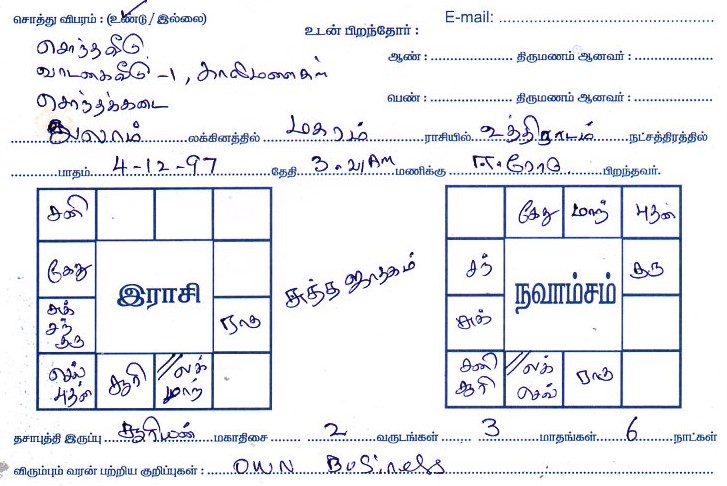 சொத்து விபரம் : (உண்டு / இல்லை)
E-mail:
உடன் பிறந்தோர் :
சொந்தவீடு
ஆண் : திருமணம் ஆனவர் :
வாடகைவீடு -1, காலிமனைகள்
சொந்தக்கடை
பெண் : திருமணம் ஆனவர் :
துலாம் லக்கினத்தில் மகரம் ராசியில் உத்திராடம் நட்சத்திரத்தில்
பாதம் 4-12-97 தேதி 3.21AM மணிக்கு ஈரோடு பிறந்தவர்.
சனி
கேது
சுக்
சந்
குரு
இராசி
ராகு
செவ்
புதன்
சூரி
லக்
மாந்
சுத்த ஜாதகம்
கேது மாந் புதன்
சந்
நவாம்சம்
குரு
சுக்
சனி
சூரி
லக்
செவ்
ராகு
தசாபுத்தி இருப்பு சூரியன் மகாதிசை 2 வருடங்கள் 3 மாதங்கள் 6 நாட்கள்
விரும்பும் வரன் பற்றிய குறிப்புகள் : OWN Business